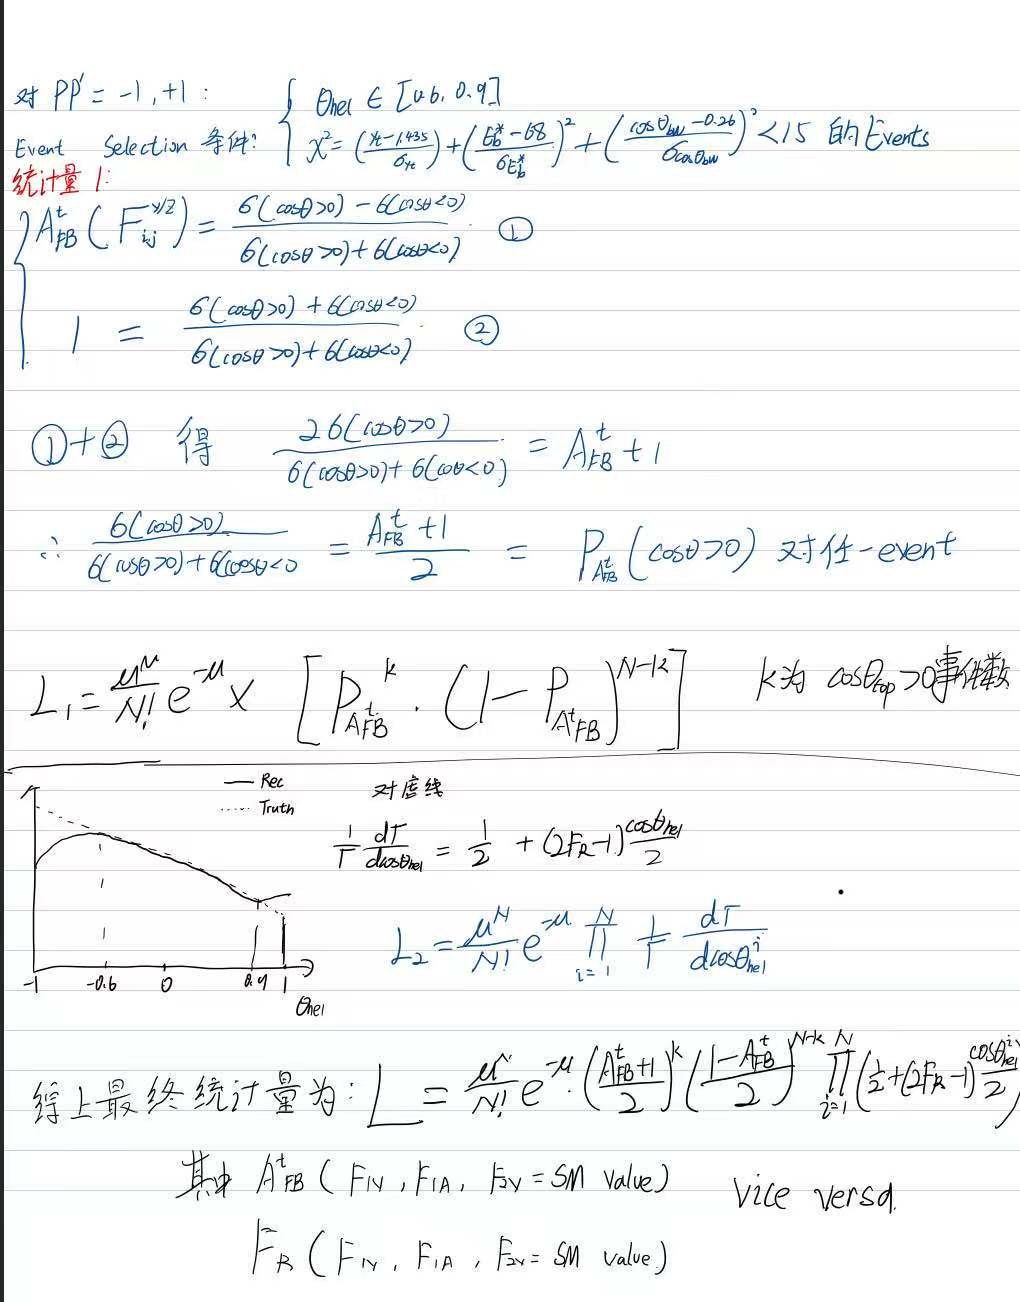 对 PP' = -1, +1 :
{ θhel ∈ [-0.6, 0.9]
Event Selection 条件: χ² = (γt-1.435/σγt) + (Eb*-68/σEb*)² + (cosθbw-0.26/σcosθbw)² < 15 的 Events
统计量 1:
{ A^t_FB (F_ij^γ/Z) = σ(cosθ>0) - σ(cosθ<0) / σ(cosθ>0) + σ(cosθ<0) ①
1 = σ(cosθ>0) + σ(cosθ<0) / σ(cosθ>0) + σ(cosθ<0) ②
①+② 得 2σ(cosθ>0) / σ(cosθ>0) + σ(cosθ<0) = A^t_FB + 1
∴ σ(cosθ>0) / σ(cosθ>0) + σ(cosθ<0 = A^t_FB + 1 / 2 = P_A^t_FB (cosθ>0) 对任一event
L₁ = μ^N/N! e^-μ × [P_A^t_FB^k · (1 - P_A^t_FB)^N-k] k为 cosθtop>0事件数
— Rec
..... Truth
对虚线
1/Γ dΓ/dcosθhel = 1/2 + (2F_R-1) cosθhel/2
L₂ = μ^N/N! e^-μ ∏_i=1^N 1/Γ dΓ/dcosθ^i_hel
-1 -0.6 0 0.9 1
θhel
综上最终统计量为: L = μ^N/N! e^-μ · (A^t_FB+1/2)^k (1-A^t_FB/2)^N-k ∏_i=1^N (1/2 + (2F_R-1) cosθ^i_hel/2)
其中 A^t_FB (F1V, F1A, F2V = SM value) vice versa.
F_R (F1V, F1A, F2V = SM value)